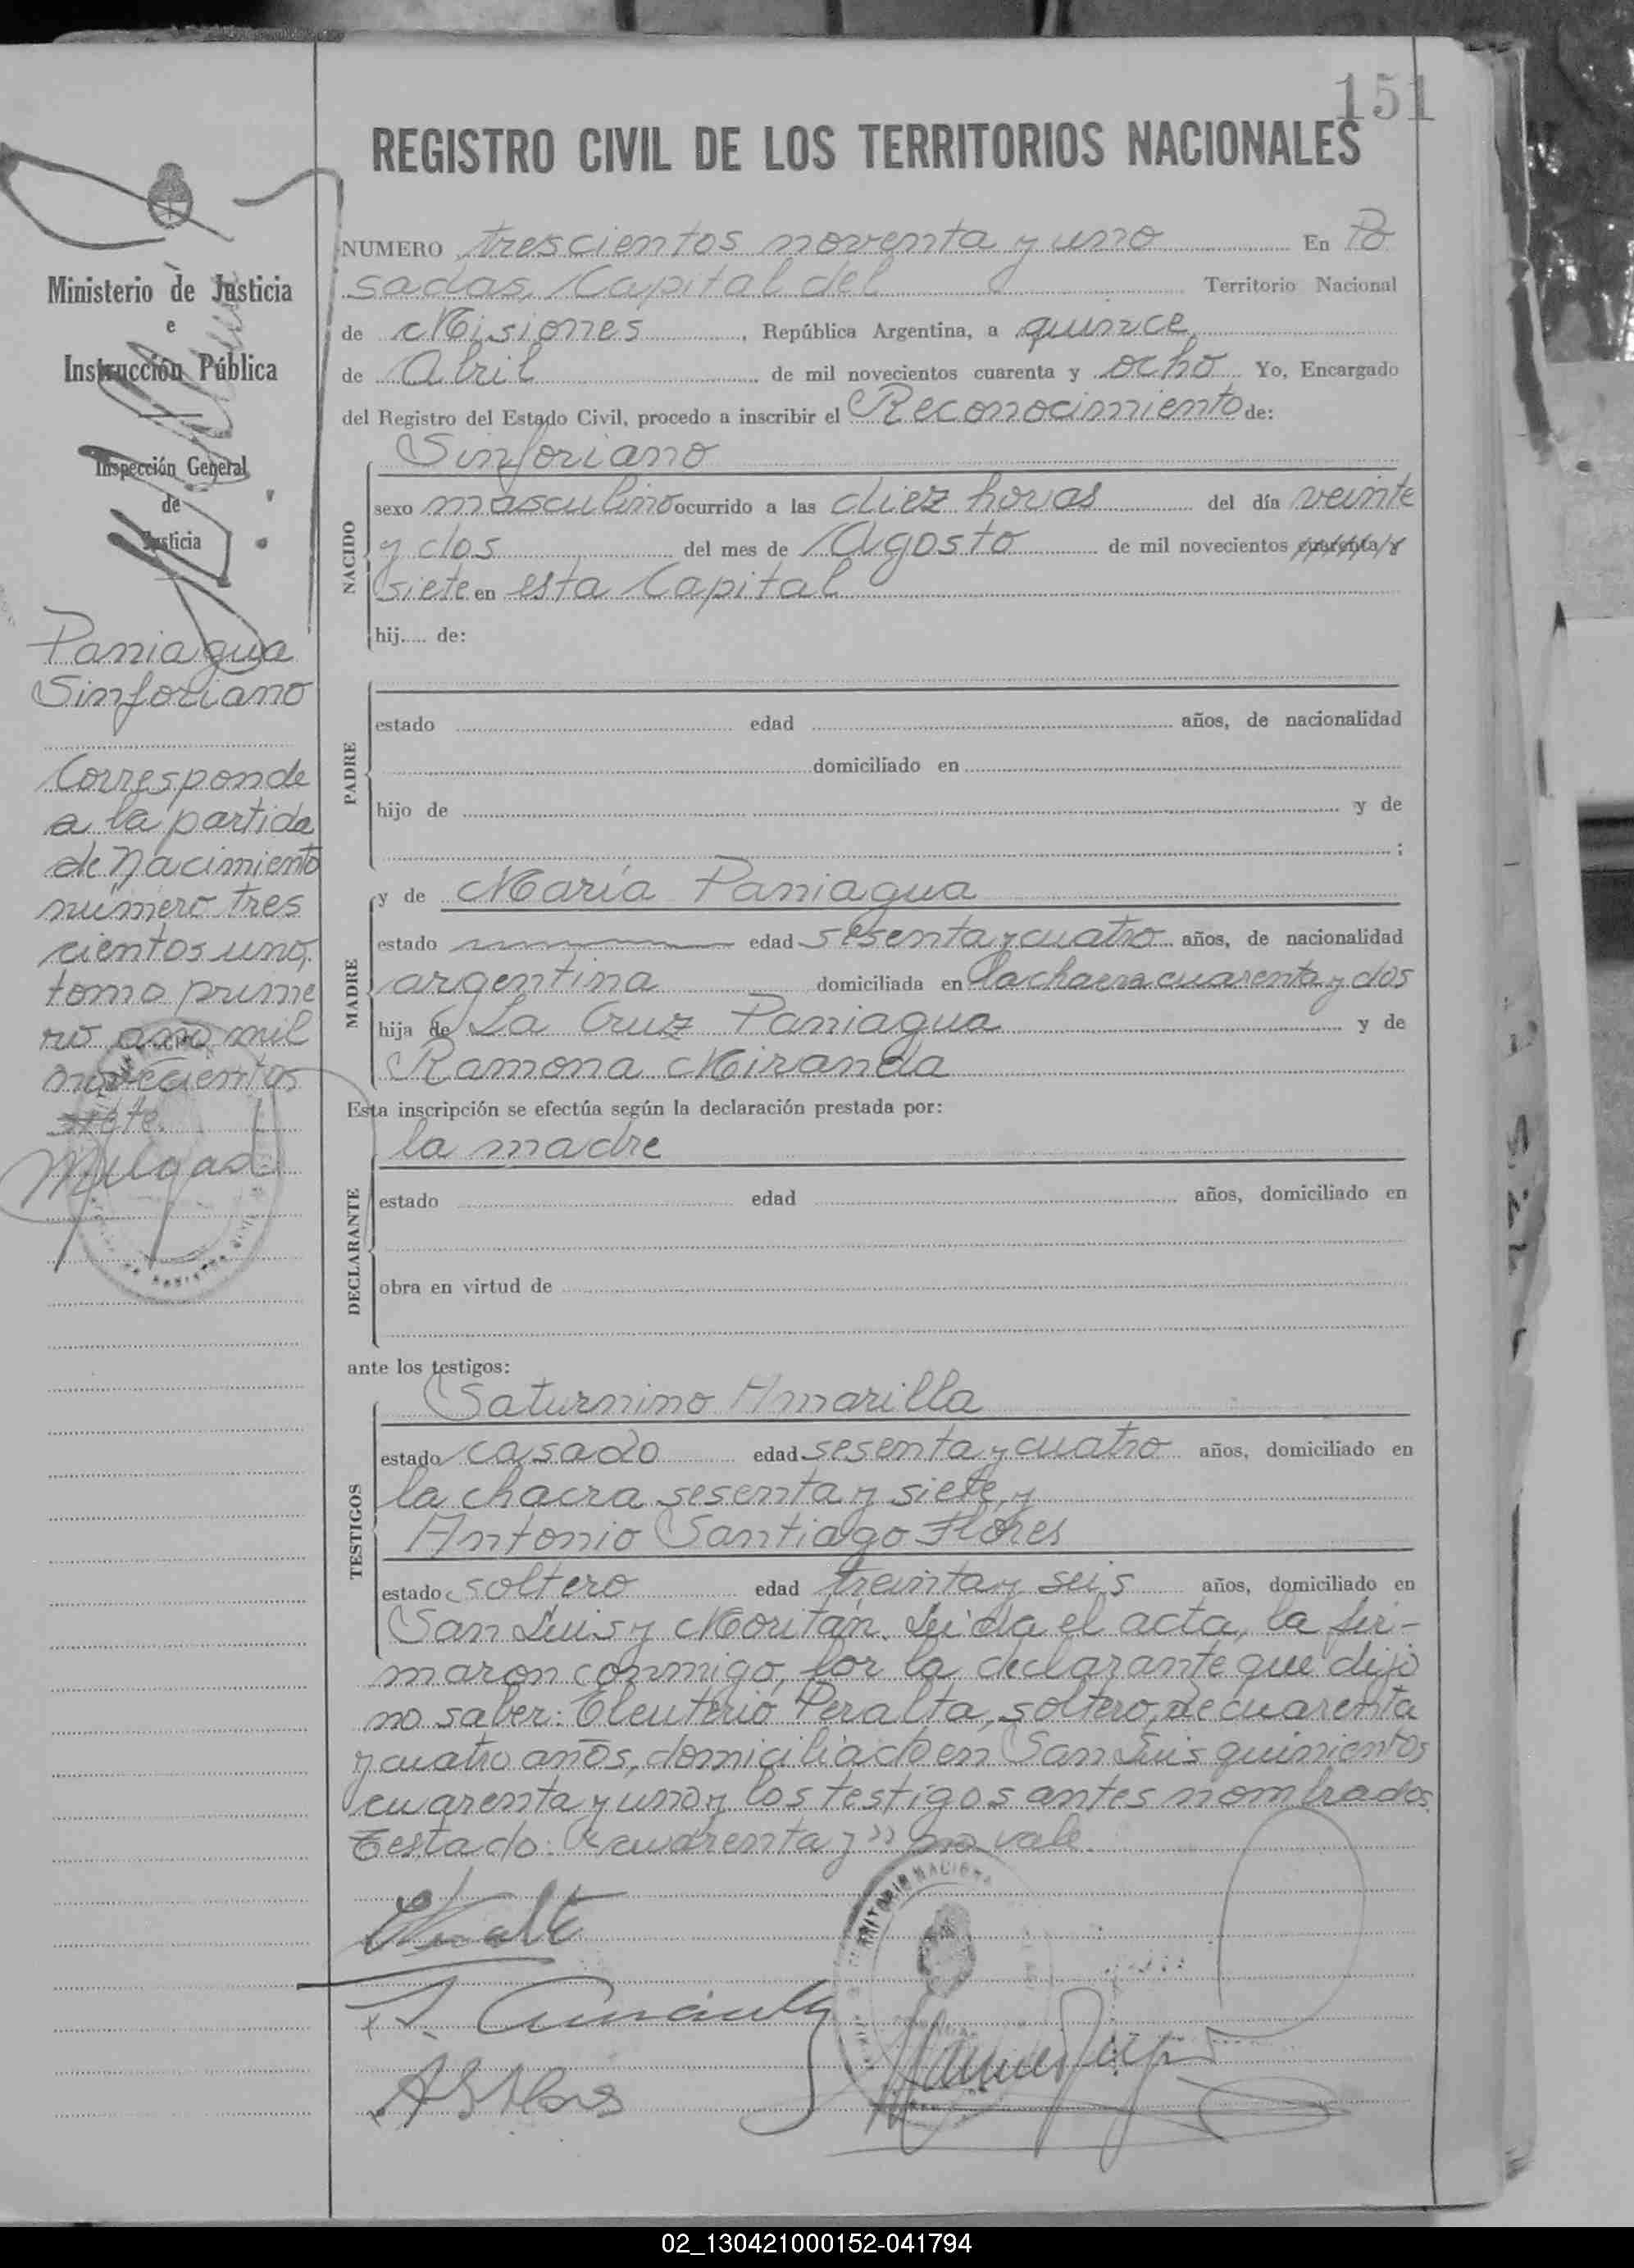 151
REGISTRO CIVIL DE LOS TERRITORIOS NACIONALES
Ministerio de Justicia
e
Instrucción Pública
Inspección General
de
Justicia
Paniagua
Sinforiano
Corresponde
a la partida
de Nacimiento
número tres
cientos uno,
tomo prime
ro año mil
novecientos
siete.
NUMERO trescientos noventa y uno En Po
sadas, Capital del Territorio Nacional
de Misiones, República Argentina, a quince
de Abril de mil novecientos cuarenta y ocho Yo, Encargado
del Registro del Estado Civil, procedo a inscribir el Reconocimiento de:
Sinforiano
NACIDO
sexo masculino ocurrido a las diez horas del día veinte
y dos del mes de Agosto de mil novecientos cuarenta y
siete en esta Capital
hij..... de:
PADRE
estado edad años, de nacionalidad
domiciliado en
hijo de y de
;
y de María Paniagua
MADRE
estado edad sesenta y cuatro años, de nacionalidad
argentina domiciliada en la chacra cuarenta y dos
hija de La Cruz Paniagua y de
Ramona Miranda
Esta inscripción se efectúa según la declaración prestada por:
la madre
DECLARANTE
estado edad años, domiciliado en
obra en virtud de
ante los testigos:
Saturnino Amarilla
TESTIGOS
estado casado edad sesenta y cuatro años, domiciliado en
la chacra sesenta y siete, y
Antonio Santiago Flores
estado soltero edad treinta y seis años, domiciliado en
San Luis y Moritán. Leída el acta, la fir-
maron conmigo, por la declarante que dijo
no saber: Eleuterio Peralta, soltero, de cuarenta
y cuatro años, domiciliado en San Luis quinientos
cuarenta y uno y los testigos antes nombrados.
Testado: "cuarenta y" no vale.
02_130421000152-041794